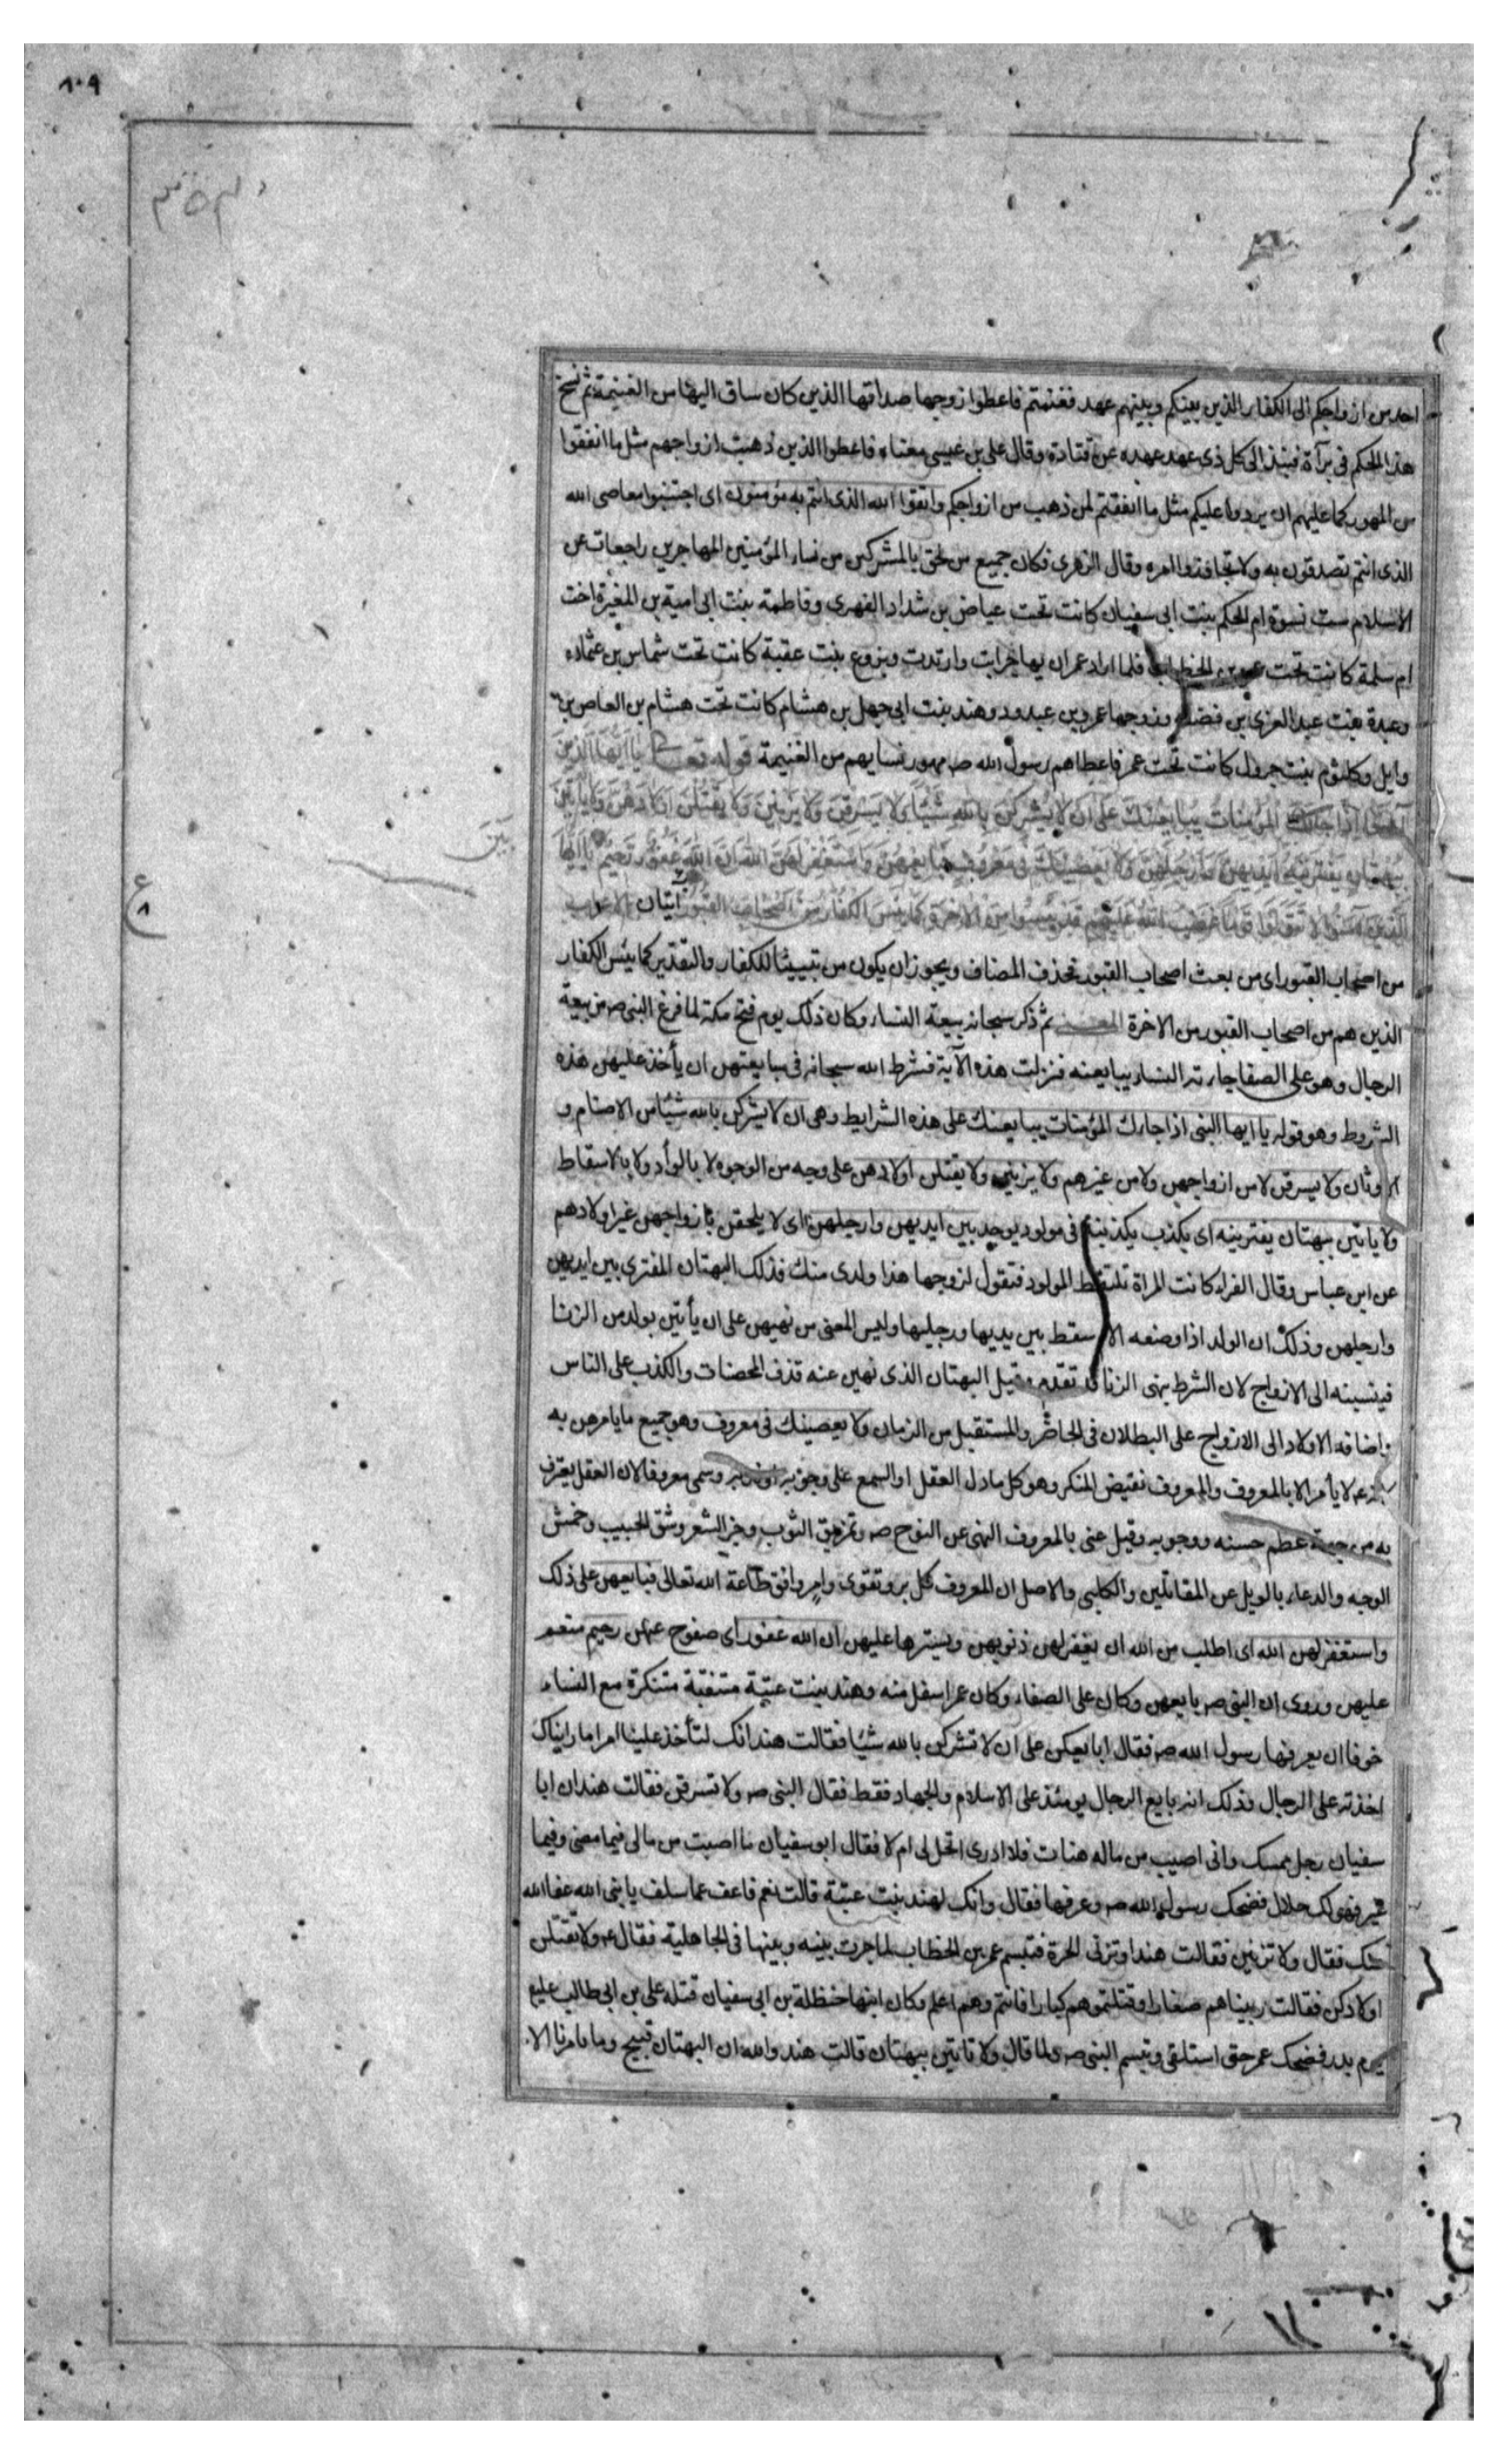 ٨٠٩
احد من ازواجكم الى الكفار الذين بينكم وبينهم عهد فغنمتم فاعطوا زوجها صداقها الذى كان ساق اليها من الغنيمة ثم نسخ
هذا الحكم فى برآة فنبذ الى كل ذى عهد عهده عن قتادة وقال على بن عيسى معناه فاعطوا الذين ذهبت ازواجهم مثل ما انفقوا
من المهور كما عليهم ان يردوا عليكم مثل ما انفقتم لمن ذهب من ازواجكم واتقوا الله الذى انتم به مؤمنون اى اجتنبوا معاصى الله
الذى انتم تصدقون به ولا تجاوزوا امره وقال الزهرى فكان جميع من لحق بالمشركين من نساء المؤمنين المهاجرين راجعات عن
الاسلام ست نسوة ام الحكم بنت ابى سفيان كانت تحت عياض بن شداد الفهرى وفاطمة بنت ابى امية بن المغيرة اخت
ام سلمة كانت تحت عمر بن الخطاب فلما اراد عمر ان يهاجر ابت وارتدت وبزوع بنت عقبة كانت تحت شماس بن عثمان
وعبدة بنت عبد العزى بن فضلة وزوجها عمرو بن عبدود وهند بنت ابى جهل بن هشام كانت تحت هشام بن العاص بن
وايل وكلثوم بنت جرول كانت تحت عمر فاعطاهم رسول الله صـ مهور نسايهم من الغنيمة قوله تعـ يا ايها الذين
المؤمنات يبايعنك على ان لا يشركن بالله شيئا ولا يسرقن ولا يزنين ولا يقتلن اولادهن ولا يأتين
ببهتان يفترينه ايديهن وارجلهن ولا يعصينك فى معروف فبايعهن واستغفر لهن الله ان الله غفور رحيم يا ايها
بين
الذين آمنوا لا تتولوا قوما غضب الله عليهم قد يئسوا من الآخرة كما يئس الكفار من اصحاب القبور آيتان الاعراب
من اصحاب القبور اى من بعث اصحاب القبور فحذف المضاف ويجوز ان يكون من تبيينا للكفار والتقدير كما يئس الكفار
الذين هم من اصحاب القبور من الاخرة المعـنى ثم ذكر سبحانه بيعة النساء وكان ذلك يوم فتح مكة لما فرغ النبى صـ من بيعة
الرجال وهو على الصفا جاءته النساء يبايعنه فنزلت هذه الآية فشرط الله سبحانه فى مبايعتهن ان يأخذ عليهن هذه
الشروط وهو قوله يا ايها النبى اذا جاءك المؤمنات يبايعنك على هذه الشرايط وهى ان لا يشركن بالله شيئا من الاصنام و
الاوثان ولا يسرقن لا من ازواجهن ولا من غيرهم ولا يزنين ولا يقتلن اولادهن على وجه من الوجوه لا بالوأد ولا بالاسقاط
ولا ياتين ببهتان يفترينه اى بكذب يكذبنه فى مولود يوجد بين ايديهن وارجلهن اى لا يلحقن بازواجهن غير اولادهم
عن ابن عباس وقال الفراء كانت المراة تلتقط المولود فتقول لزوجها هذا ولدى منك فذلك البهتان المفترى بين ايديهن
وارجلهن وذلك ان الولد اذا وضعه الام سقط بين يديها ورجليها وليس المعنى من نهيهن على ان يأتين بولد من الزنا
فينسبنه الى الازواج لان الشرط بنهى الزنا قد تقدم وقيل البهتان الذى نهين عنه قذف المحصنات والكذب على الناس
واضافه الاولاد الى الازواج على البطلان فى الحاضر والمستقبل من الزمان ولا يعصينك فى معروف وهو جميع ما يامرهن به
لانه لا يأمر الا بالمعروف والمعروف نقيض المنكر وهو كل ما دل العقل او السمع على وجوبه او ندبه وسمى معروفا لان العقل يعترف
به من جهة عظم حسنه ووجوبه وقيل عنى بالمعروف النهى عن النوح صـ وتمزيق الثوب وجز الشعر وشق الجيب وخمش
الوجه والدعاء بالويل عن المقاتلين والكلبى والاصل ان المعروف كل بر وتقوى وامر وافق طاعة الله تعالى فبايعهن على ذلك
واستغفر لهن الله اى اطلب من الله ان يغفر لهن ذنوبهن ويسترها عليهن ان الله غفور اى صفوح عنهن رحيم منعم
عليهن وروى ان النبى صـ بايعهن وكان على الصفاء وكان عمر اسفل منه وهند بنت عتبة متنقبة متنكرة مع النساء
خوفا ان يعرفها رسول الله صـ فقال ابايعكن على ان لا تشركن بالله شيئا فقالت هند انك لتأخذ علينا امرا ما رايناك
اخذته على الرجال وذلك انه بايع الرجال يومئذ على الاسلام والجهاد فقط فقال النبى صـ ولا تسرقن فقالت هند ان ابا
سفيان رجل ممسك وانى اصيب من ماله هنات فلا ادرى اتحل لى ام لا فقال ابو سفيان ما اصبت من مالى فيما مضى وفيما
غبر فهو لك حلال فضحك رسول الله صـ وعرفها فقال وانك لهند بنت عتبة قالت نعم فاعف عما سلف يا نبى الله عفا الله
عنك فقال ولا تزنين فقالت هند اوتزنى الحرة فتبسم عمر بن الخطاب لما جرت بينه وبينها فى الجاهلية فقال عـ ولا تقتلن
اولادكن فقالت ربيناهم صغارا وقتلتموهم كبارا فانتم وهم اعلم وكان ابنها حنظلة بن ابى سفيان قتله على بن ابى طالب عليهـ
يوم بدر فضحك عمر حتى استلقى وتبسم النبى صـ ولما قال ولا تاتين ببهتان قالت هند والله ان البهتان قبيح وما تامرنا الا